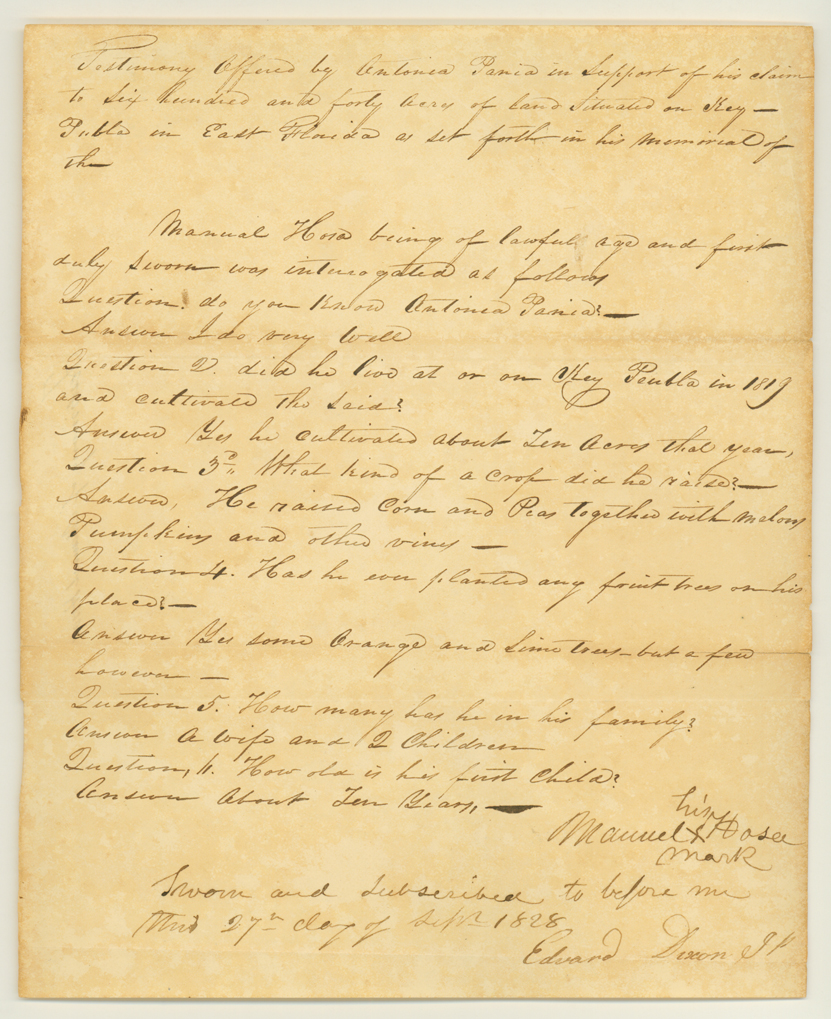 Testimony Offered by Antonia Pania in Support of his claim
to Six hundred and forty Acres of Land Situated on Key —
Publa in East Florida as set forth in his Memorial of
the
Manual Hosa being of lawfull age and first
duly sworn was interogated as follows
Question. do you Know Antonia Pania? —
Answer I do very Well
Question 2. did he live at or on Key Peubla in 1819
and cultivate the said?
Answer Yes he cultivated about Ten Acres that year,
Question 3d. What kind of a crop did he raise? —
Answer, He raised Corn and Peas together with melons
Pumpkins and other vines —
Question 4. Has he ever planted any fruit trees on his
place? —
Answer Yes some Orange and Lime trees — but a few
however —
Question 5. How many has he in his family?
Answer A wife and 2 Children
Question, 6. How old is his first Child?
Answer About Ten Years, —
his
Manuel X Hosa
mark
Sworn and subscribed to before me
this 27th day of Sepr 1828
Edward Dixon J P